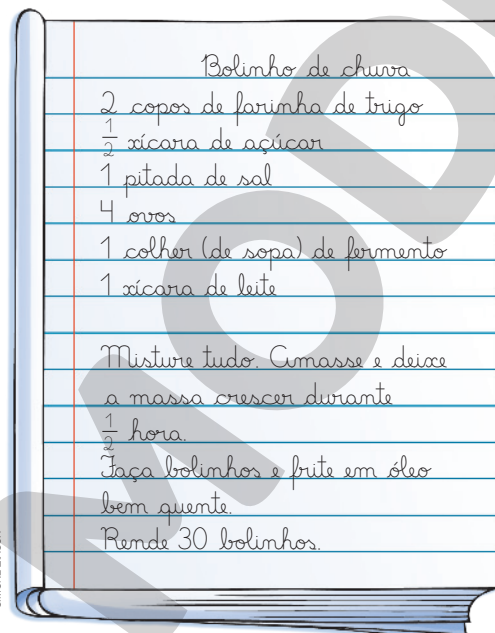 Bolinho de chuva
2 copos de farinha de trigo
1/2 xícara de açúcar
1 pitada de sal
4 ovos
1 colher (de sopa) de fermento
1 xícara de leite
Misture tudo. Amasse e deixe
a massa crescer durante
1/2 hora.
Faça bolinhos e frite em óleo
bem quente.
Rende 30 bolinhos.